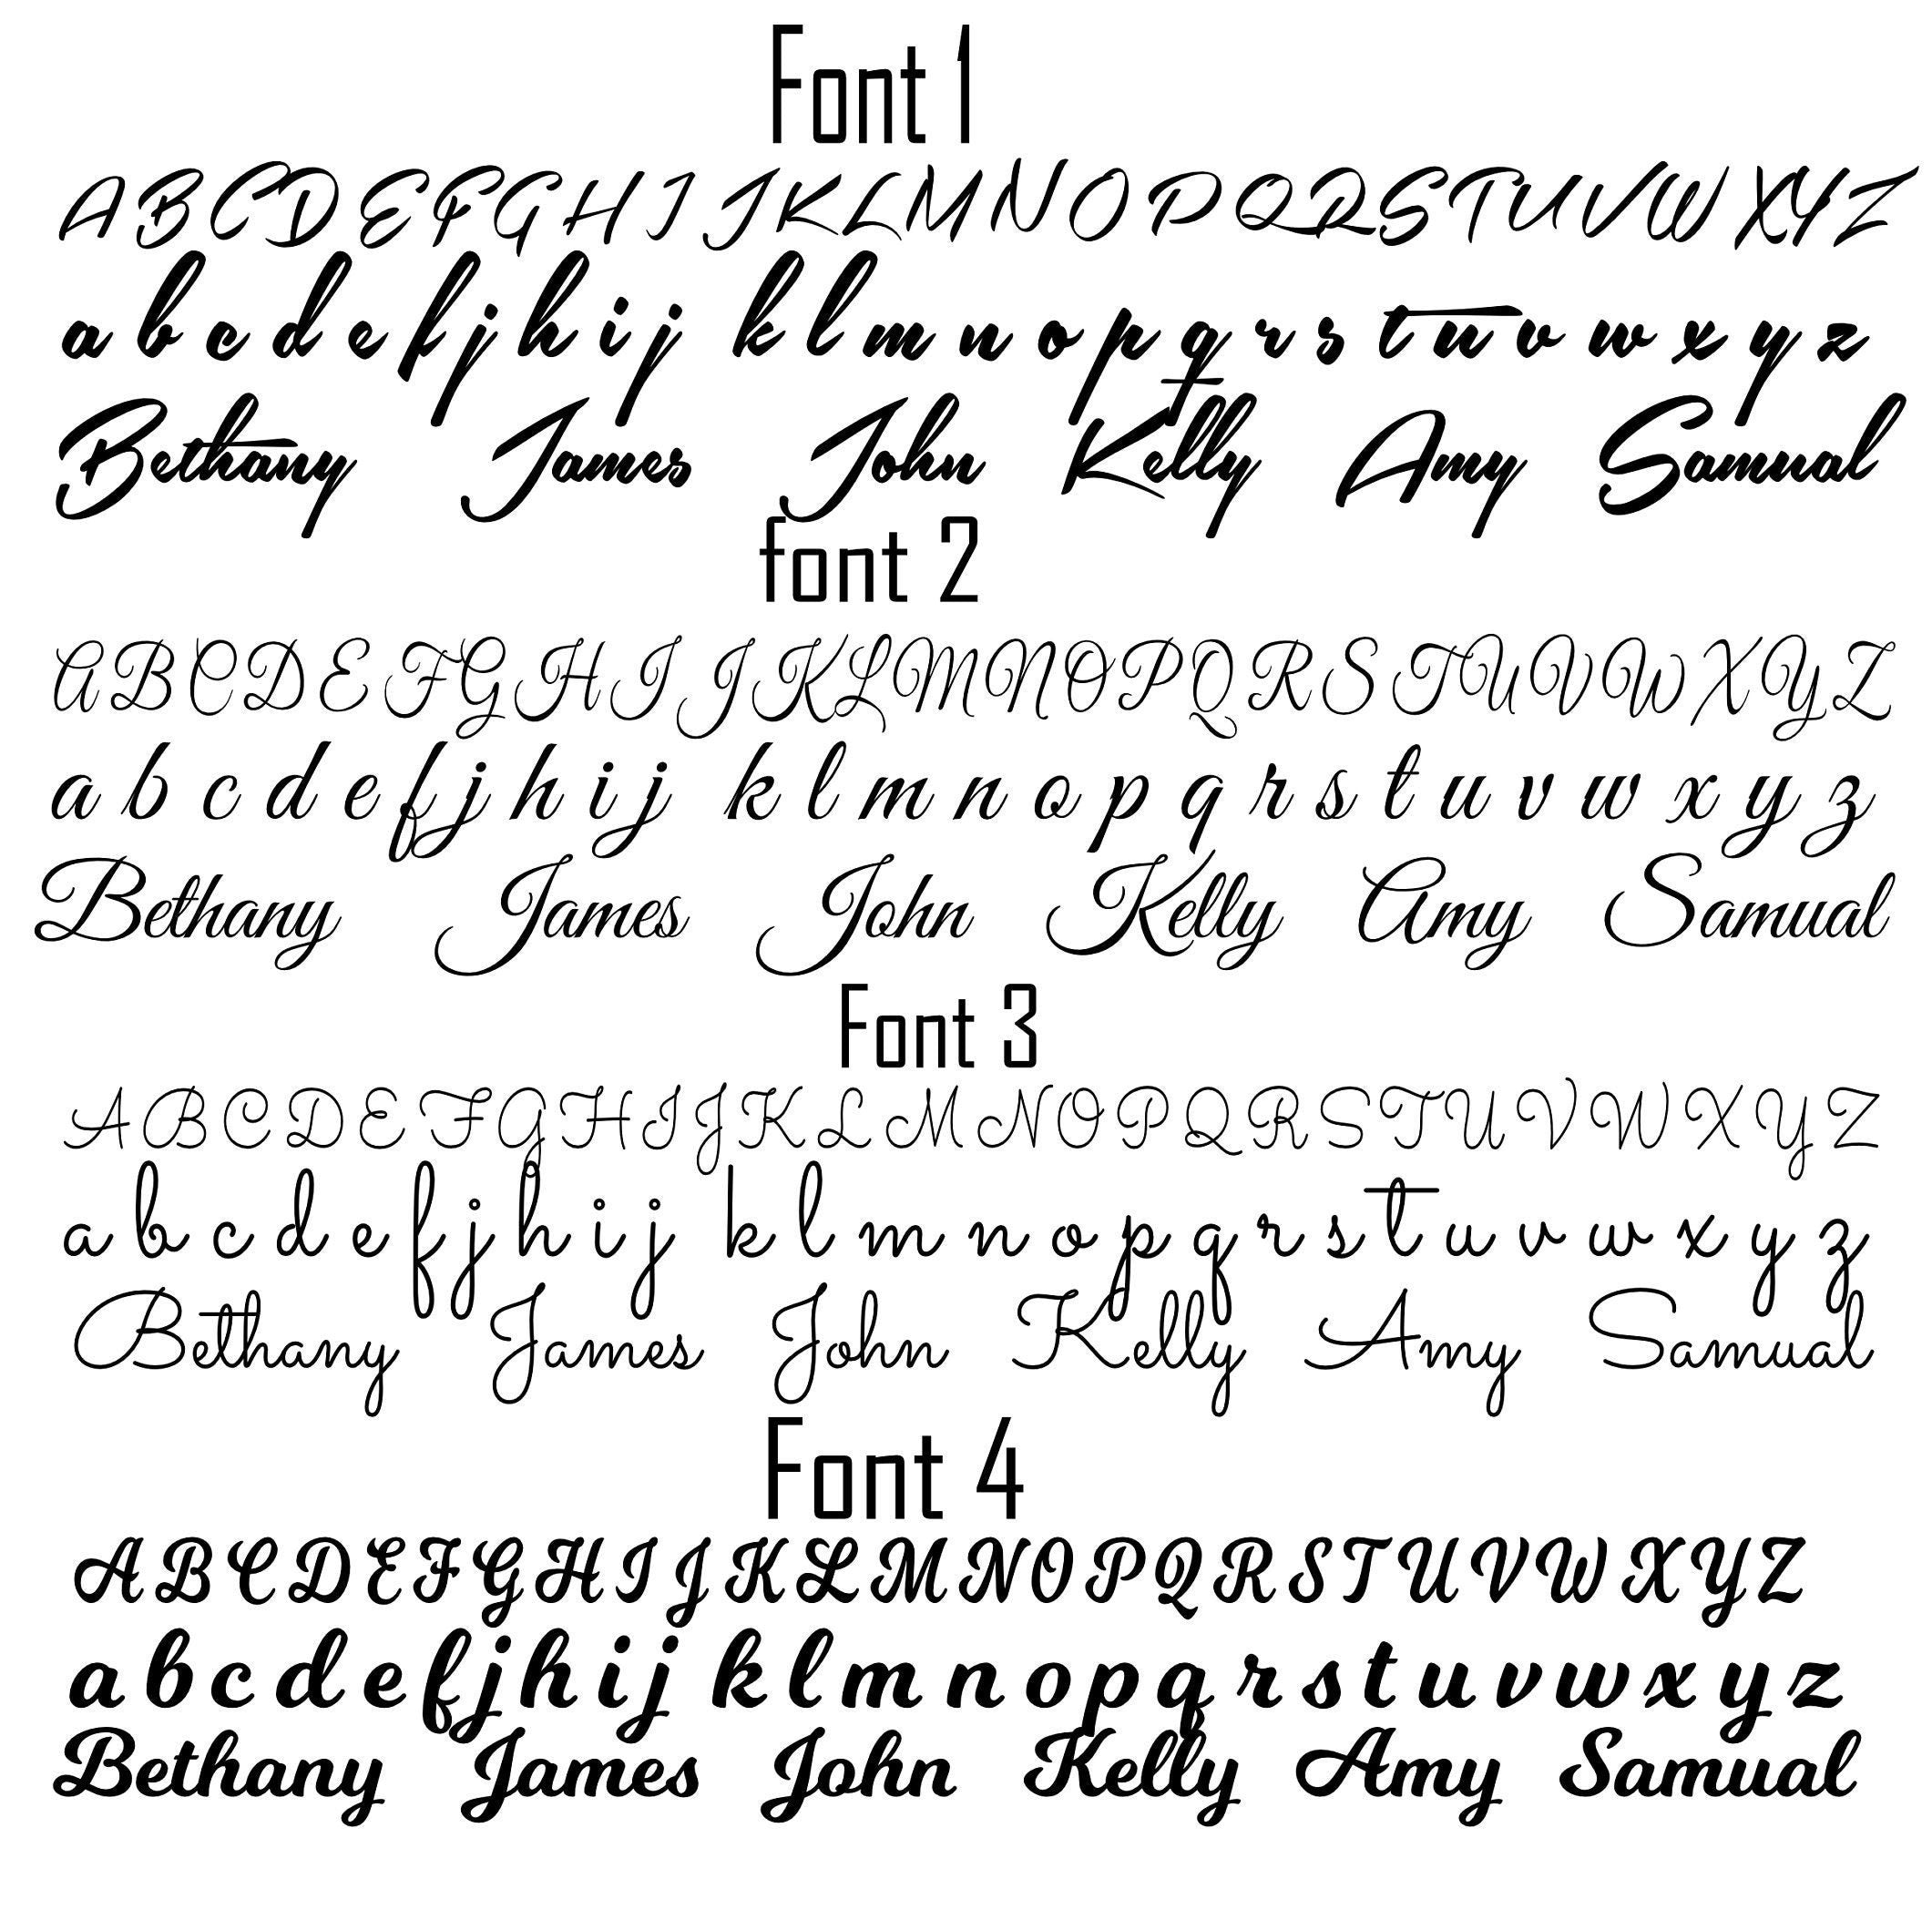 Font 1
A B C D E F G H I J K L M N O P Q R S T U V W X Y Z
a b c d e f j h i j k l m n o p q r s t u v w x y z
Bethany James John Kelly Amy Samual
font 2
A B C D E F G H I J K L M N O P Q R S T U V W X Y Z
a b c d e f j h i j k l m n o p q r s t u v w x y z
Bethany James John Kelly Amy Samual
Font 3
A B C D E F G H I J K L M N O P Q R S T U V W X Y Z
a b c d e f j h i j k l m n o p q r s t u v w x y z
Bethany James John Kelly Amy Samual
Font 4
A B C D E F G H I J K L M N O P Q R S T U V W X Y Z
a b c d e f j h i j k l m n o p q r s t u v w x y z
Bethany James John Kelly Amy Samual